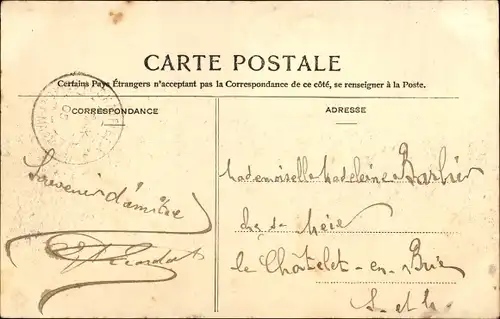 CARTE POSTALE
Certains Pays Étrangers n'acceptant pas la Correspondance de ce côté, se renseigner à la Poste.
CORRESPONDANCE
ADRESSE
Souvenir d'amitié
Mademoiselle Madeleine Barbier
chez sa Mère
le Châtelet-en-Brie
S-et-M